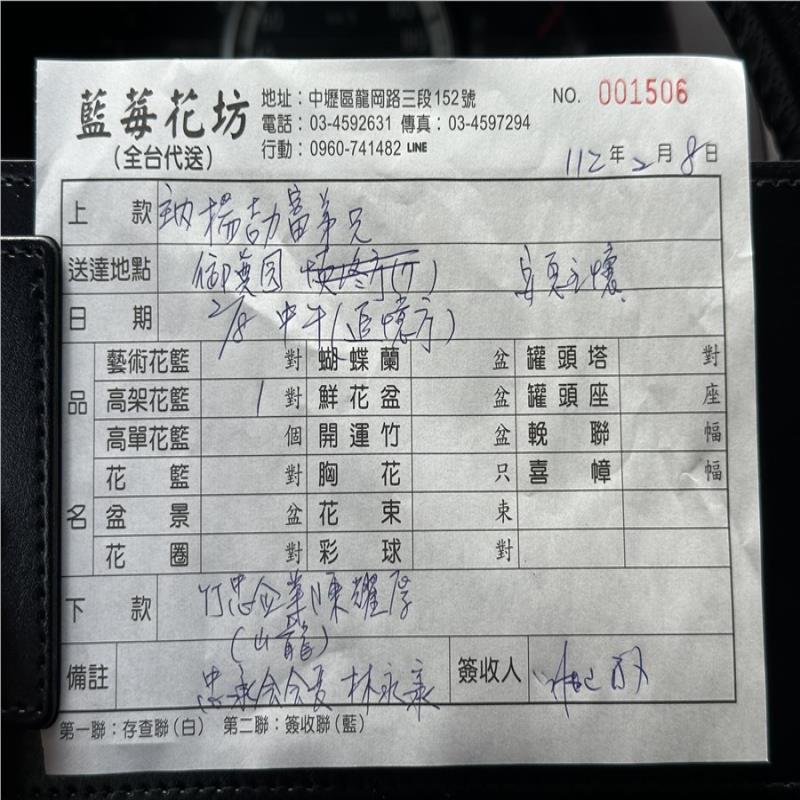 藍莓花坊
(全台代送)
地址：中壢區龍岡路三段152號
電話：03-4592631 傳真：03-4597294
行動：0960-741482 LINE
NO. 001506
112年2月8日
上款 楊吉富弟兄
送達地點
日期 2/8 中午(追憶廳)
品名
藝術花籃 對 蝴蝶蘭 盆 罐頭塔 對
高架花籃 1 對 鮮花盆 盆 罐頭座 座
高單花籃 個 開運竹 盆 輓聯 幅
花籃 對 胸花 只 喜幛 幅
盆景 盆 花束 束
花圈 對 彩球 對
下款 竹忠企業 陳耀
備註 林永 簽收人
第一聯：存查聯(白) 第二聯：簽收聯(藍)